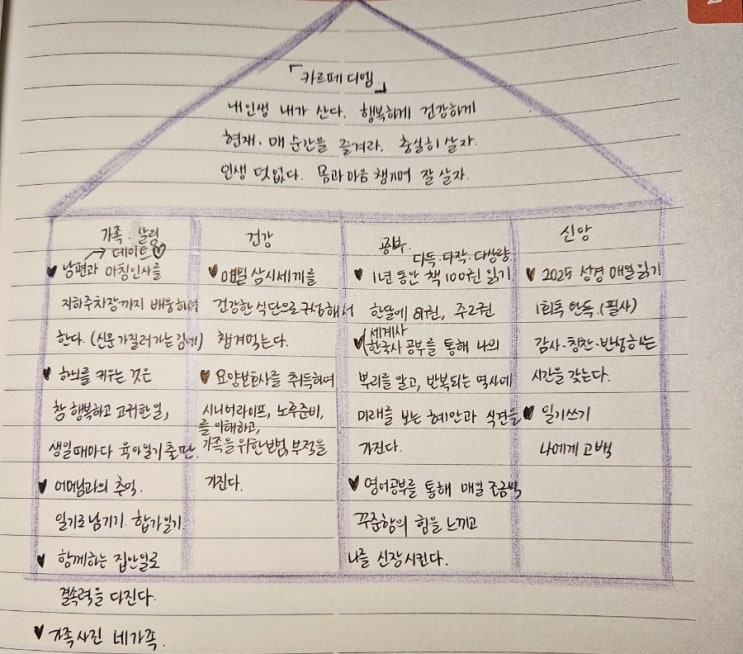 「카르페 디엠」
내 인생 내가 산다. 행복하게 건강하게
현재·매 순간을 즐겨라. 충실히 살자.
인생 덧없다. 몸과 마음 챙기며 잘 살자.
가족·살림
→ 데이트♡
♥ 남편과 아침인사를
지하주차장까지 배웅하며
한다. (신문 가질러가는 김에)
♥ 하늬를 키우는 것은
참 행복하고 고귀한 일,
생일때마다 육아일기 출판.
♥ 어머님과의 추억.
일기로 남기기. 합가일기
♥ 함께하는 집안일로
결속력을 다진다.
♥ 가족사진 네가족.
건강
♥ 매일 삼시세끼를
건강한 식단으로 구성해서
챙겨먹는다.
♥ 요양보호사를 취득하여
시니어라이프, 노후준비,
를 이해하고,
가족을 위한 보험, 부적을
가진다.
공부
다독·다작·다상량
♥ 1년 동안 책 100권 읽기
한달에 8권, 주2권
세계사
♥ 한국사 공부를 통해 나의
뿌리를 알고, 반복되는 역사에
미래를 보는 혜안과 식견을
가진다.
♥ 영어공부를 통해 매일 조금씩
꾸준함의 힘을 느끼고
나를 신장시킨다.
신앙
♥ 2025 성경 매일 읽기
1회독 완독 (필사)
감사·칭찬·반성하는
시간을 갖는다.
♥ 일기쓰기
나에게 고백